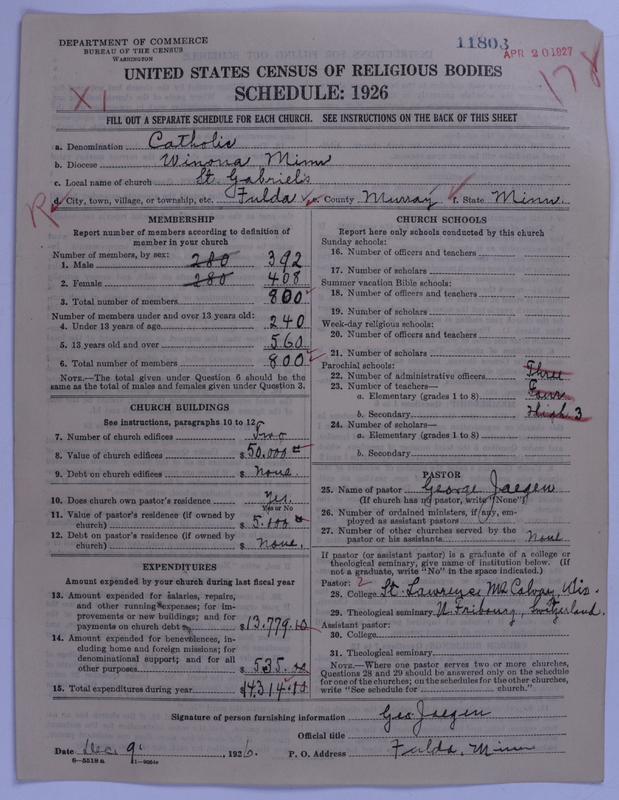 DEPARTMENT OF COMMERCE
BUREAU OF THE CENSUS
WASHINGTON
11803
APR 20 1927
178
UNITED STATES CENSUS OF RELIGIOUS BODIES
SCHEDULE: 1926
X1
FILL OUT A SEPARATE SCHEDULE FOR EACH CHURCH. SEE INSTRUCTIONS ON THE BACK OF THIS SHEET
a. Denomination Catholic
b. Diocese Winona Minn
c. Local name of church St. Gabriels
R
d. City, town, village, or township, etc. Fulda e. County Murray f. State Minn.
MEMBERSHIP
Report number of members according to definition of
member in your church
Number of members, by sex:
1. Male 280 392
2. Female 280 408
3. Total number of members 800
Number of members under and over 13 years old:
4. Under 13 years of age 240
5. 13 years old and over 560
6. Total number of members 800
NOTE.—The total given under Question 6 should be the
same as the total of males and females given under Question 3.
CHURCH BUILDINGS
See instructions, paragraphs 10 to 12
7. Number of church edifices Two
8. Value of church edifices $50.000
9. Debt on church edifices $ None
10. Does church own pastor's residence Yes.
Yes or No
11. Value of pastor's residence (if owned by
church) $ 5.000
12. Debt on pastor's residence (if owned by
church) $ None.
EXPENDITURES
Amount expended by your church during last fiscal year
13. For salaries, repairs,
and other running expenses; for im-
provements or new buildings; and for
payments on church debt $13.779.10
14. Amount for benevolences, in-
cluding home and foreign missions; for
denominational support; and for all
other purposes $ 535.00
15. Total expenditures during year $14,314.10
CHURCH SCHOOLS
Report here only schools conducted by this church
Sunday schools:
16. Number of officers and teachers
17. Number of scholars
Summer vacation Bible schools:
18. Number of officers and teachers
19. Number of scholars
Week-day religious schools:
20. Number of officers and teachers
21. Number of scholars
Parochial schools:
22. Number of administrative officers Three
23. Number of teachers—
a. Elementary (grades 1 to 8) Four
b. Secondary High 3
24. Number of scholars—
a. Elementary (grades 1 to 8)
b. Secondary
PASTOR
25. Name of pastor George Jaegen
(If church has no pastor, write "None")
26. Number of ordained ministers, if any, em-
ployed as assistant pastors
27. Number of other churches served by the
pastor or his assistants None
If pastor (or assistant pastor) is a graduate of a college or
theological seminary, give name of institution below. (If
not a graduate, write "No" in the space indicated.)
Pastor: 2
28. College St. Lawrence Mt Calvary, Wis.
29. Theological seminary U. Fribourg, Switzerland.
Assistant pastor:
30. College
31. Theological seminary
NOTE.—Where one pastor serves two or more churches,
Questions 28 and 29 should be answered only on the schedule
for one of the churches; on the schedules for the other churches,
write "See schedule for church."
Signature of person furnishing information Geo Jaegen
Official title
Date Dec. 9, 1926. P. O. Address Fulda, Minn
6—5518 a